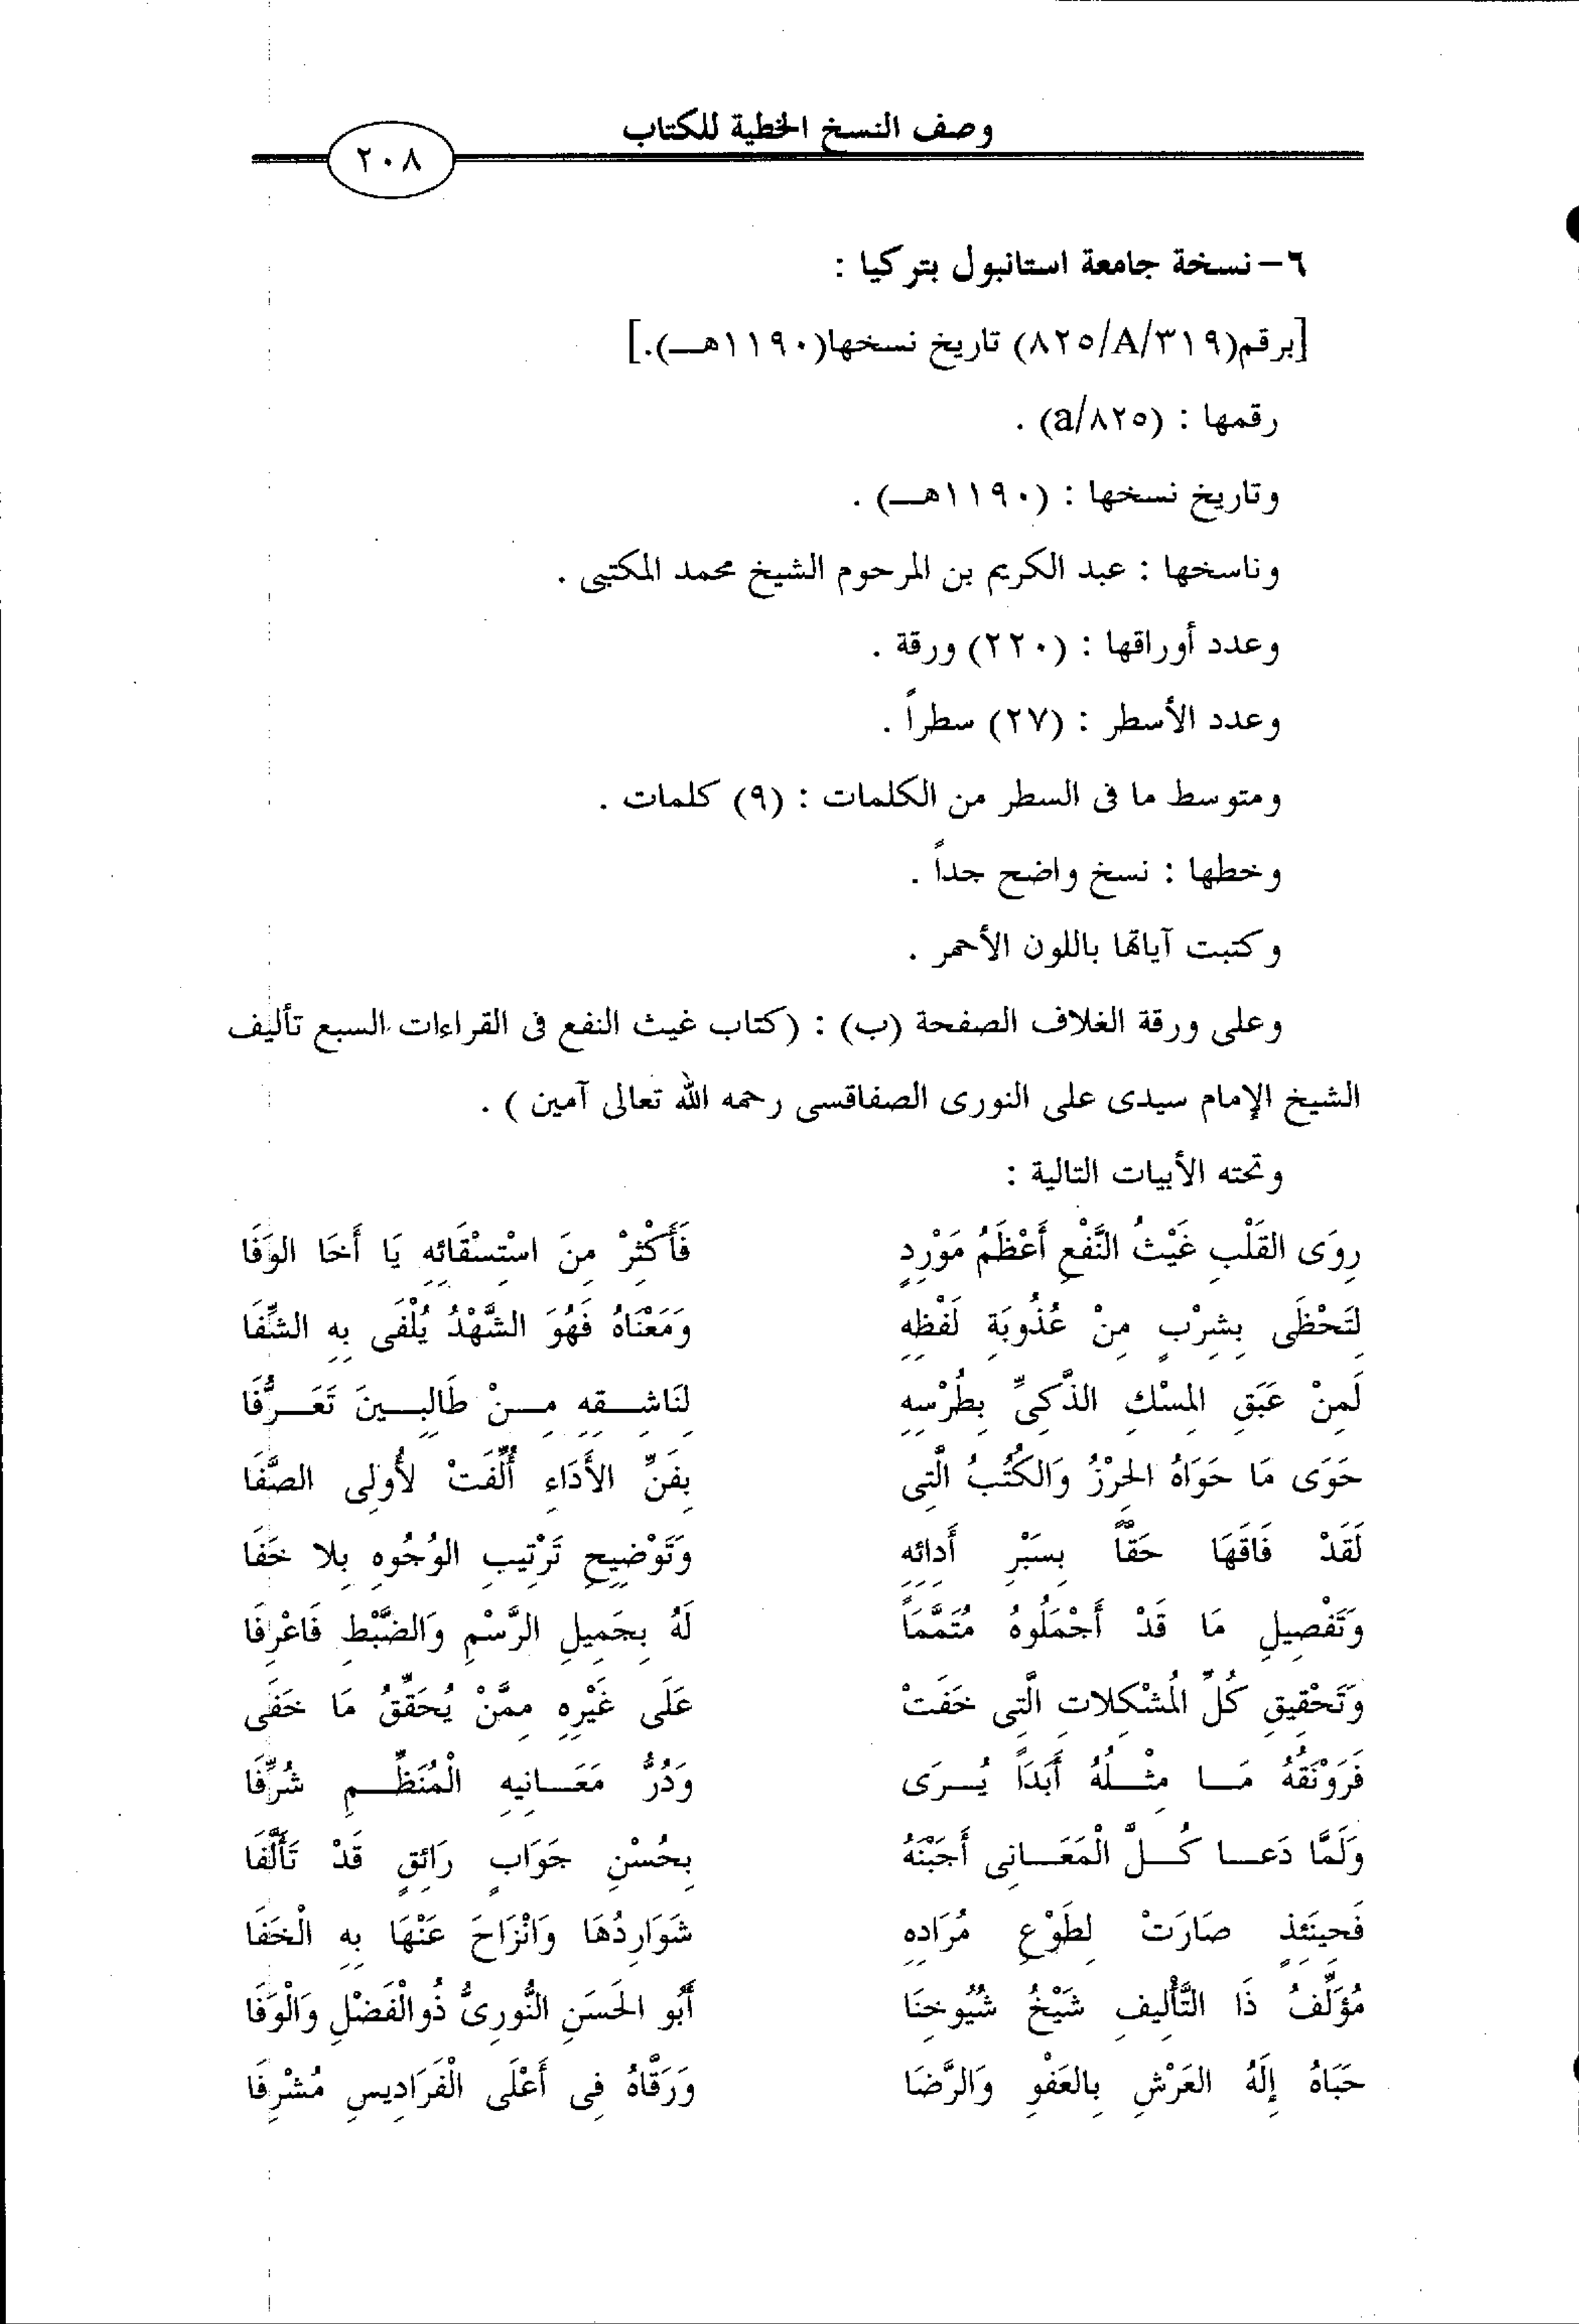 وصف النسخ الخطية للكتاب
٢٠٨
٦- نسخة جامعة استانبول بتركيا :
[برقم(٨٢٥/A/٣١٩) تاريخ نسخها(١١٩٠هـ).]
رقمها : (a/٨٢٥) .
وتاريخ نسخها : (١١٩٠هـ) .
وناسخها : عبد الكريم بن المرحوم الشيخ محمد المكتبى .
وعدد أوراقها : (٢٢٠) ورقة .
وعدد الأسطر : (٢٧) سطراً .
ومتوسط ما فى السطر من الكلمات : (٩) كلمات .
وخطها : نسخ واضح جداً .
وكتبت آياتها باللون الأحمر .
وعلى ورقة الغلاف الصفحة (ب) : (كتاب غيث النفع فى القراءات السبع تأليف
الشيخ الإمام سيدى على النورى الصفاقسى رحمه الله تعالى آمين ) .
وتحته الأبيات التالية :
رِوَى القَلْبِ غَيْثُ النَّفْعِ أَعْظَمُ مَوْرِدٍ فَأَكْثِرْ مِنَ اسْتِسْقَائِهِ يَا أَخَا الوَفَا
لِتَحْظَى بِشِرْبٍ مِنْ عُذُوبَةِ لَفْظِهِ وَمَعْنَاهُ فَهُوَ الشَّهْدُ يُلْفَى بِهِ الشِّفَا
لَمِنْ عَبَقِ المِسْكِ الذَّكِىِّ بِطُرْسِهِ لِنَاشِـقِهِ مِـنْ طَالِبِـينَ تَعَـرُّفَا
حَوَى مَا حَوَاهُ الحِرْزُ وَالكُتُبُ الَّتِى بِفَنِّ الأَدَاءِ أُلِّفَتْ لأُولِى الصَّفَا
لَقَدْ فَاقَهَا حَقّاً بِسَبْرِ أَدائِهِ وَتَوْضِيحِ تَرْتِيبِ الوُجُوهِ بِلا خَفَا
وَتَفْصِيلِ مَا قَدْ أَجْمَلُوهُ مُتَمَّمَاً لَهُ بِجَمِيلِ الرَّسْمِ وَالضَّبْطِ فَاعْرِفَا
وَتَحْقِيقِ كُلِّ المُشْكِلاتِ الَّتِى خَفَتْ عَلَى غَيْرِهِ مِمَّنْ يُحَقِّقُ مَا خَفَى
فَرَوْنَقُهُ مَـا مِثْـلُهُ أَبَدَاً يُـرَى وَدُرُّ مَعَـانِيهِ الْمُنَظَّـمِ شُرِّفَا
وَلَمَّا دَعـا كُـلَّ الْمَعَـانِى أَجَبْنَهُ بِحُسْنِ جَوَابٍ رَائِقٍ قَدْ تَأَلَّفَا
فَحِينَئِذٍ صَارَتْ لِطَوْعِ مُرَادِهِ شَوَارِدُهَا وَانْزَاحَ عَنْهَا بِهِ الْخَفَا
مُؤَلِّفُ ذَا التَّأْلِيفِ شَيْخُ شُيُوخِنَا أَبُو الحَسَنِ النُّورِىُّ ذُوالْفَضْلِ وَالْوَفَا
حَبَاهُ إِلَهُ العَرْشِ بِالعَفْوِ وَالرِّضَا وَرَقَّاهُ فِى أَعْلَى الْفَرَادِيسِ مُشْرِفَا